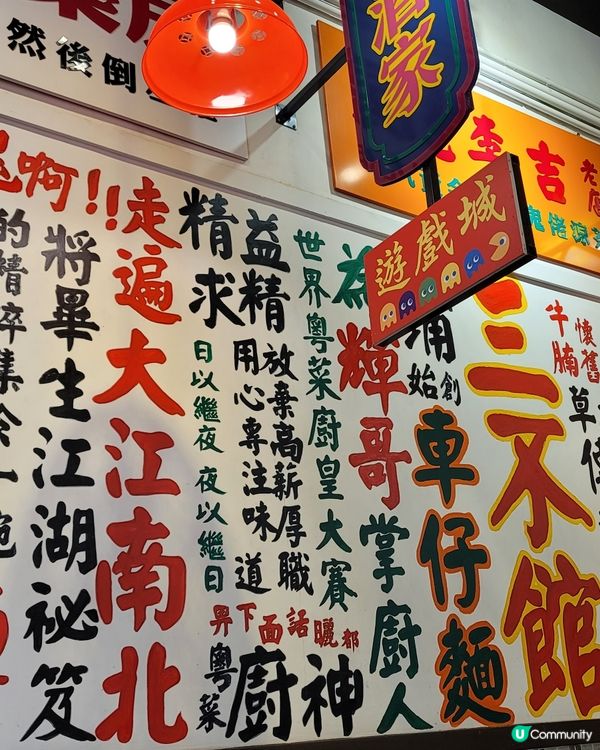 然後倒
酒家
吉
老店
遊戲城
懷舊
牛腩
草
三不館
始創
車仔麵
為
輝哥
掌廚人
世界粵菜廚皇大賽
益精
放棄高薪厚職
用心專注味道
精求
日以繼夜 夜以繼日
畀下面話曬都
粵菜
廚神
走遍大江南北
將畢生江湖祕笈
的精卒集於一
啊!!